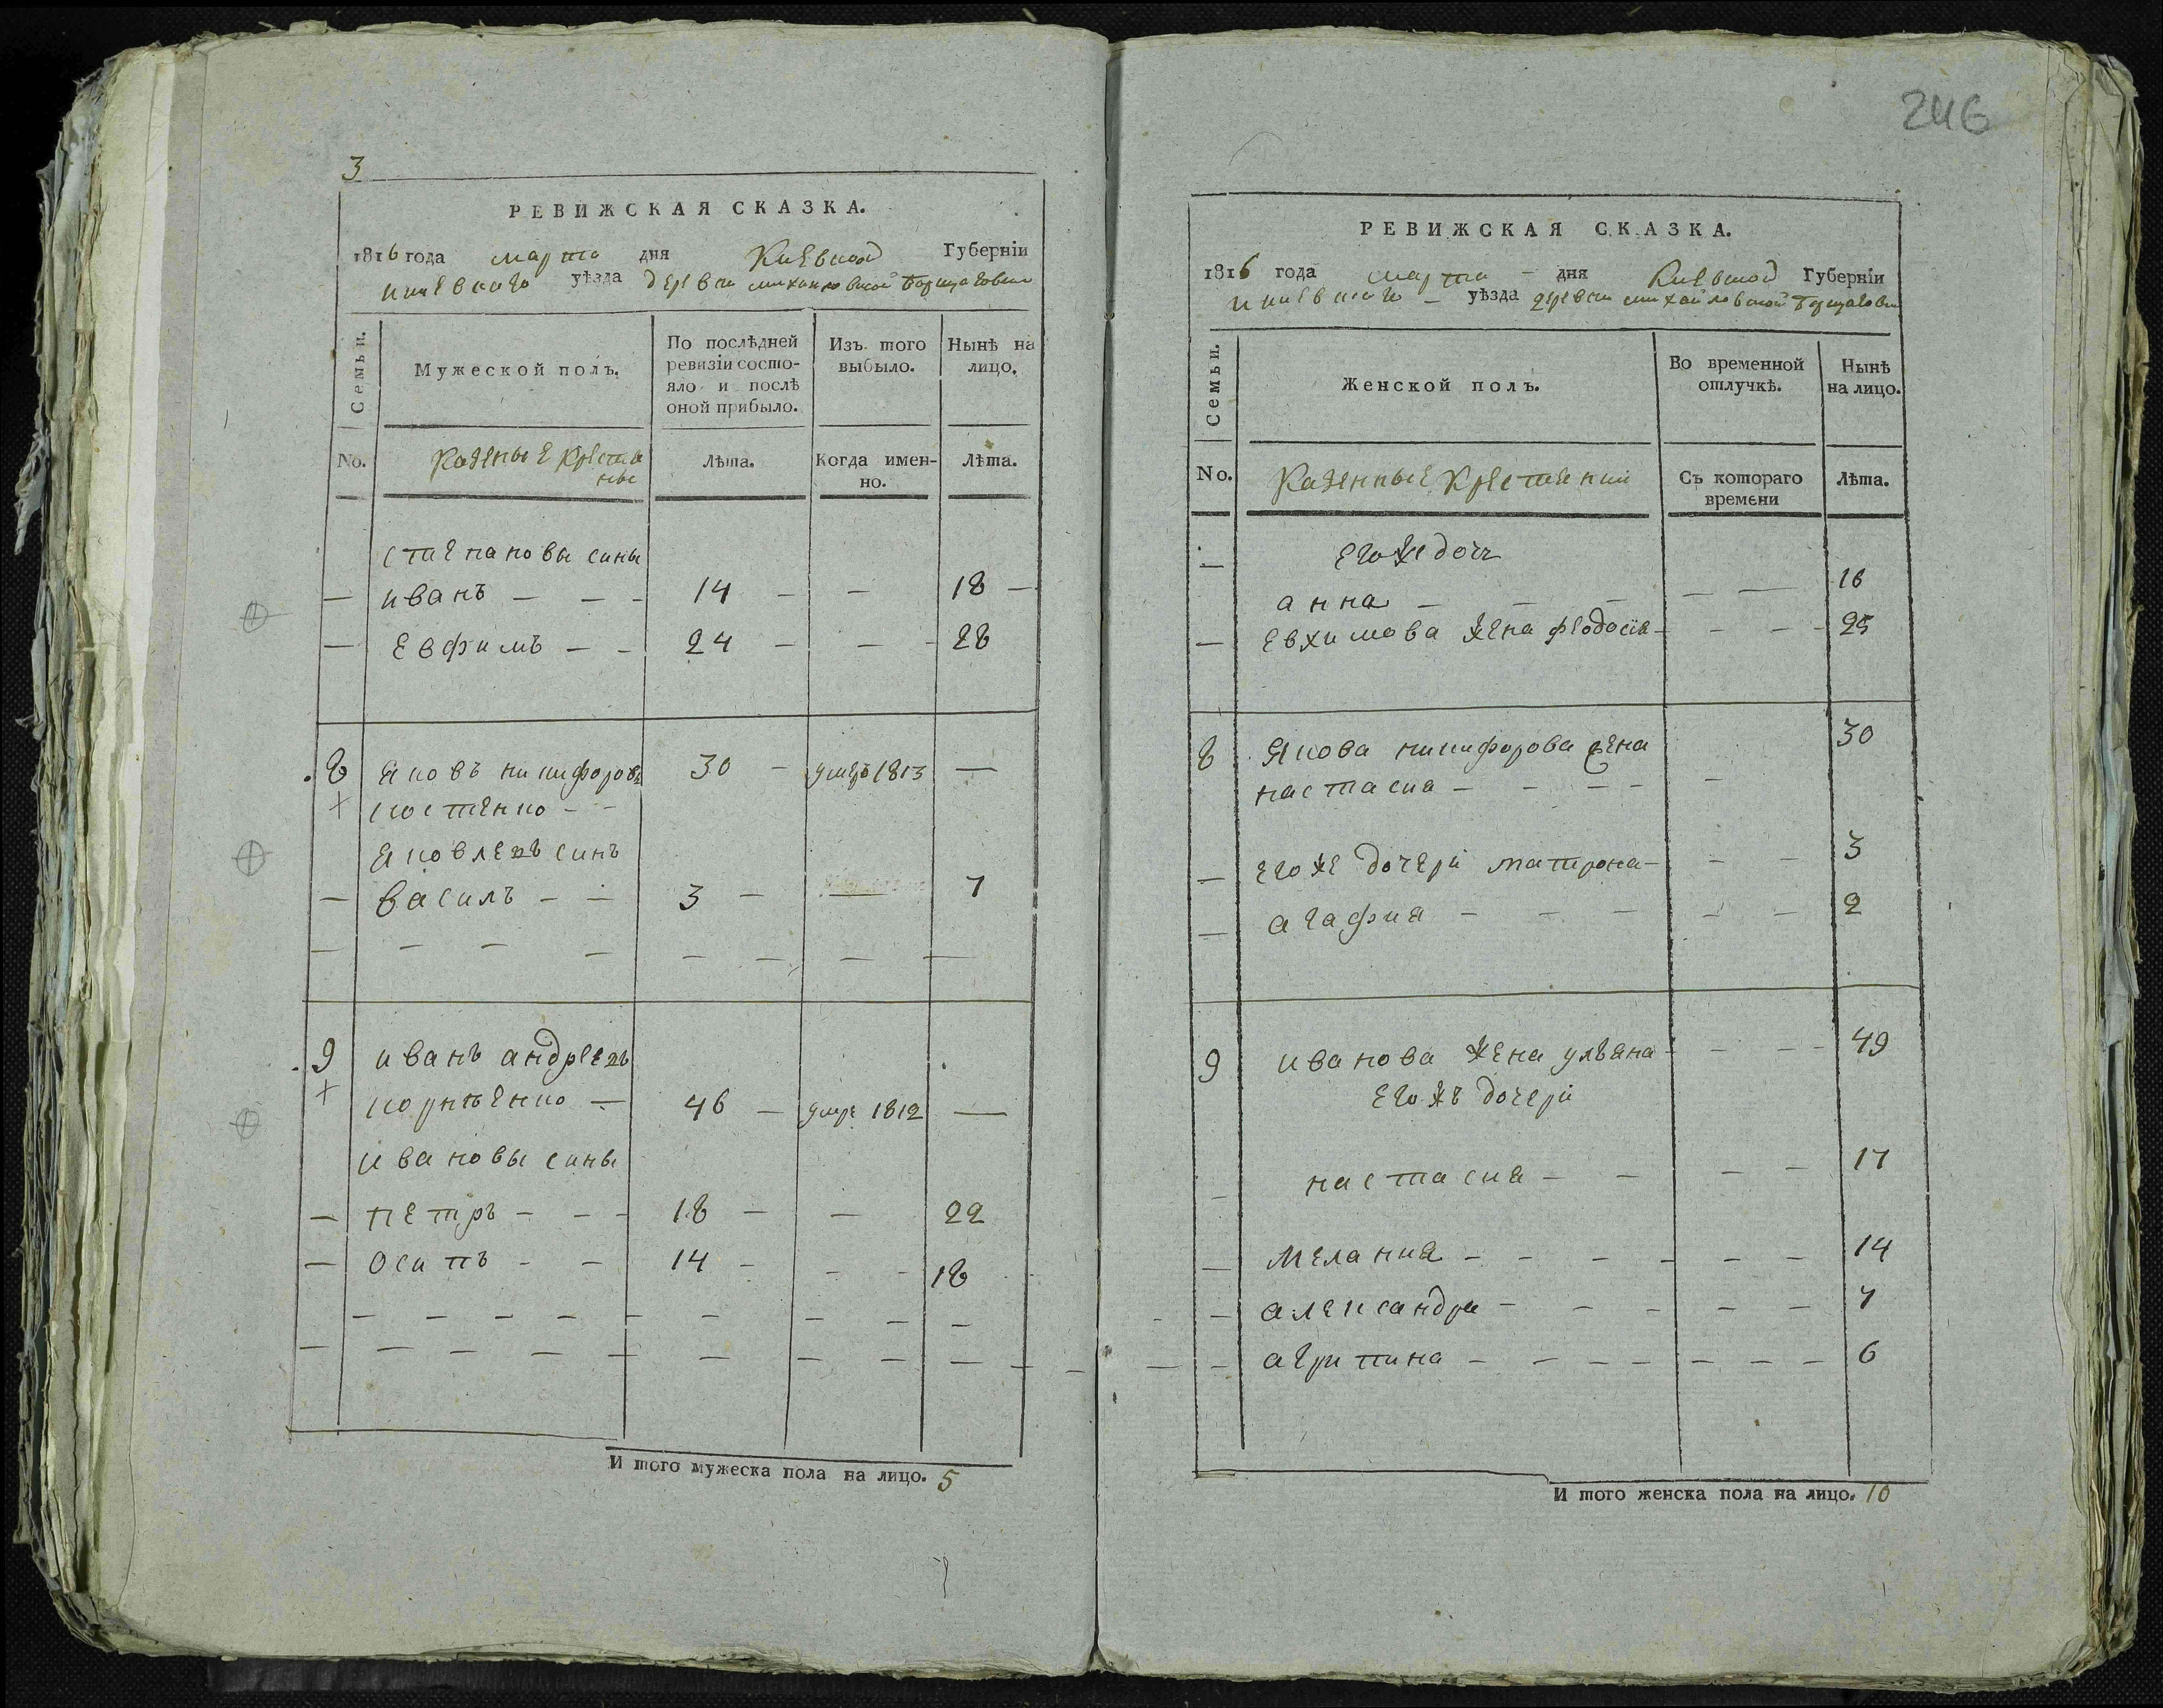 3
РЕВИЖСКАЯ СКАЗКА.
1816 года марта дня Киевской Губерніи
Киевскаго уѣзда деревни михайловской Борщаговки
Семьи.
Мужеской полъ.
По послѣдней ревизіи состояло и послѣ оной прибыло.
Изъ того выбыло.
Нынѣ на лицо.
No.
Казенные крестьяне
Лѣта.
Когда именно.
Лѣта.
степановы сины
— иванъ — — - 14 - — 18 —
— Евфимъ — - 24 - — - 28
8 Яковъ никифоровъ 30 - умеръ 1813 —
+ костенко - -
Яковлевъ синъ
— василъ - - 3 - — 7
9 иванъ андреевъ
+ корнѣенко — 46 - умре 1812 —
ивановы сины
— петръ - - - 18 - — 22
— Осипъ - - 14 - - - 18
И того мужеска пола на лицо. 5
246
РЕВИЖСКАЯ СКАЗКА.
1816 года марта - дня Киевской Губерніи
Киевскаго - уѣзда деревни михайловской Борщаговки
Семьи.
Женской полъ.
Во временной отлучкѣ.
Нынѣ на лицо.
No.
Казенные Крестянки
Съ котораго времени
Лѣта.
его же дочь
анна - - - — — 16
— Евхимова жена феодосія - - - - 25
8 Якова никифорова жена 30
настасия - - - - -
— его же дочери матрона - - - 3
— агафия - - - - - 2
9 иванова жена улѣяна - - - - 49
его жъ дочери
- настасия - - - - 17
— Мелания - - - - - - 14
- александра - - - - - 7
- агрипина - - - - - - - 6
И того женска пола на лицо. 10